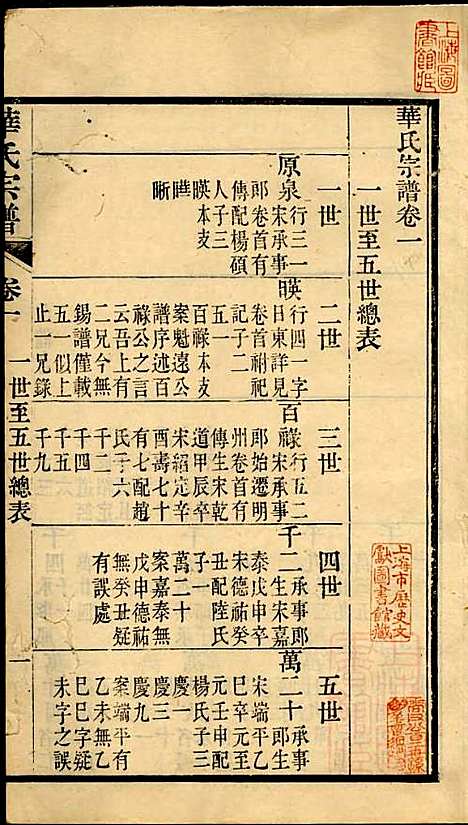 華氏宗譜卷一
一世至五世總表
一世
原泉行三一
宋承事
郎卷首有
傳配楊碩
人子三
暎本支
曄
晰
二世
暎行四一字
日東詳見
卷首祔祀
記子二
五一
百祿本支
案魁遠公
譜序述百
祿公之言
云吾上有
二兄今無
錫譜僅載
五一似上
止一兄錄
三世
百祿行五二
宋承事
郎始遷明
州卷首有
傳生宋乾
道甲辰卒
宋紹定辛
酉壽七十
有七配趙
氏子六
千二
千四
千五
千九
四世
千二承事郎
生宋嘉
泰戊申卒
宋德祐癸
丑配陸氏
子一
萬二十
案嘉泰無
戊申德祐
無癸丑疑
有誤處
五世
萬二十承事
郎生
宋端平乙
巳卒元至
元壬申配
楊氏子三
慶一
慶三
慶九
案端平有
乙未無乙
巳巳字疑
未字之誤
華氏宗譜
卷一
一世至五世總表
一
上海圖書館藏
上海市歷史文獻圖書館藏